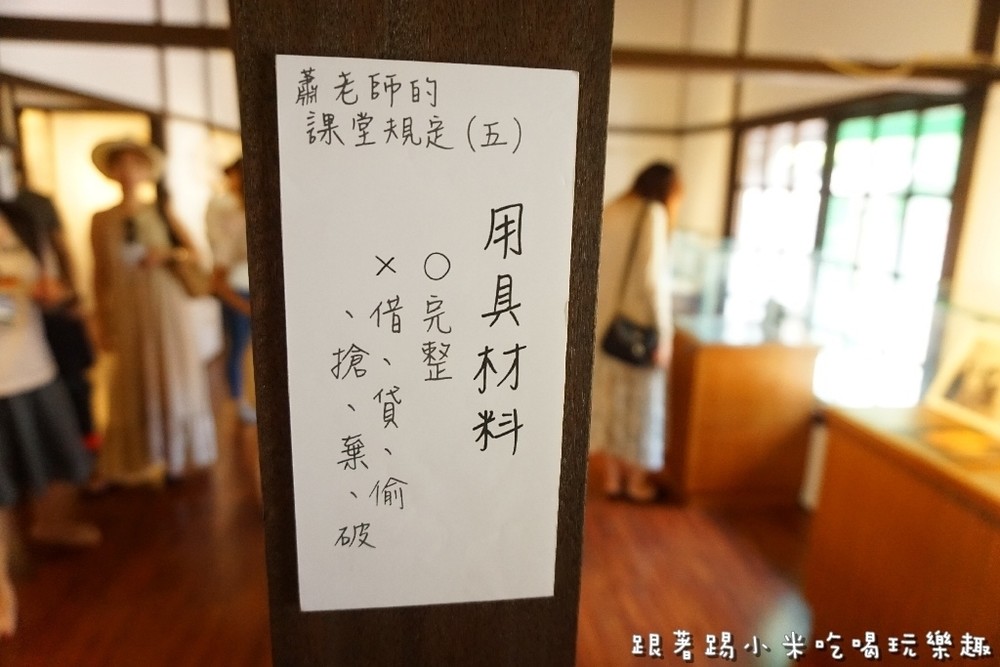 蕭老師的
課堂規定(五)
用具材料
○完整
×借、貸、偷
、搶、棄、破
跟著踢小米吃喝玩樂趣